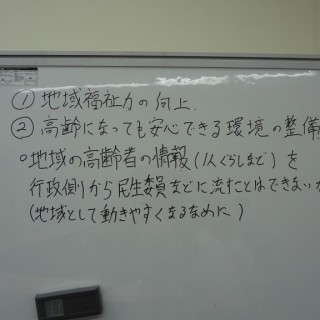 ① 地域福祉力の向上.
② 高齢になっても安心できる環境の整備
○地域の高齢者の情報(1人ぐらしなど)を
行政側から民生委員などに流すことはできないか
(地域として動きやすくなるために)